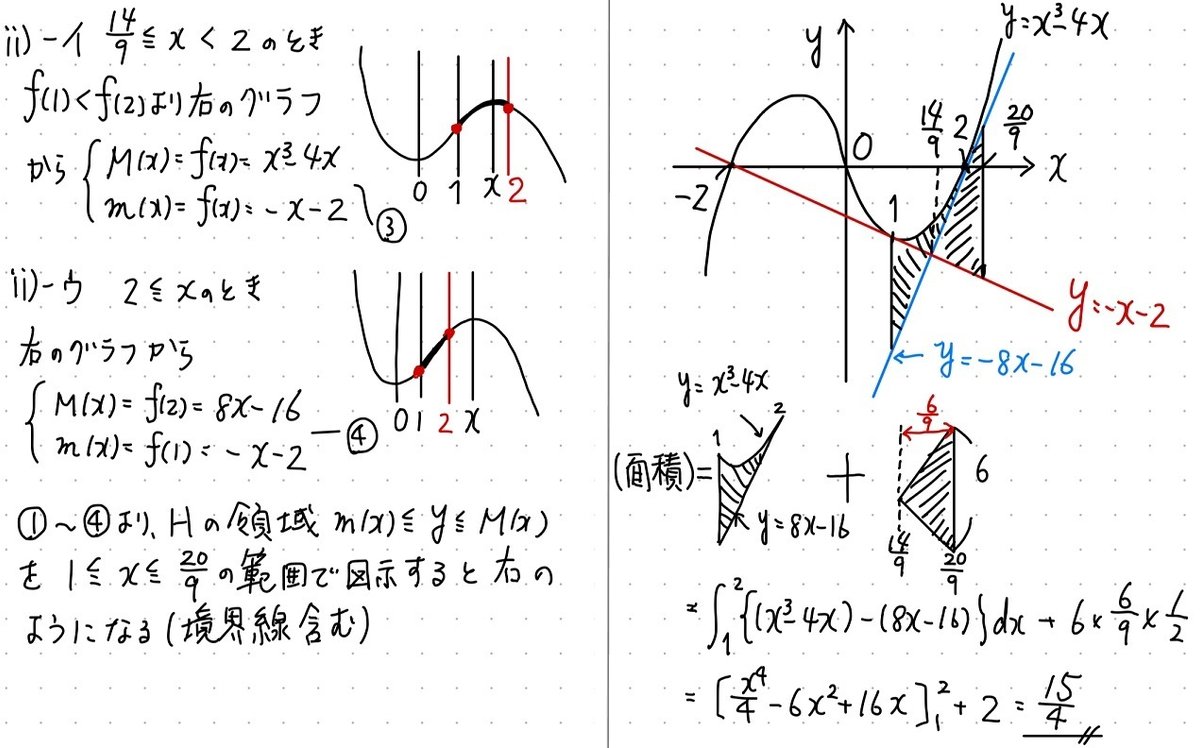 ii)-イ 14/9 ≦ x < 2 のとき
f(1)<f(2)より右のグラフ
から { M(x)=f(x)=x³-4x
m(x)=f(x)=-x-2 ③
0 1 x 2
ii)-ウ 2≦xのとき
右のグラフから
{ M(x)=f(2)=8x-16
m(x)=f(1)=-x-2 ―④
0 1 2 x
①~④より、Hの領域 m(x)≦y≦M(x)
を 1≦x≦20/9 の範囲で図示すると右の
ようになる(境界線含む)
y=x³-4x
y
0
14/9 2 20/9
x
-2
1
y=-x-2
← y=-8x-16
y=x³-4x
1 2
6/9
(面積)= + 6
y=8x-16
14/9 20/9
= ∫₁² {(x³-4x)-(8x-16)}dx + 6×6/9×1/2
= [x⁴/4-6x²+16x]₁² + 2 = 15/4